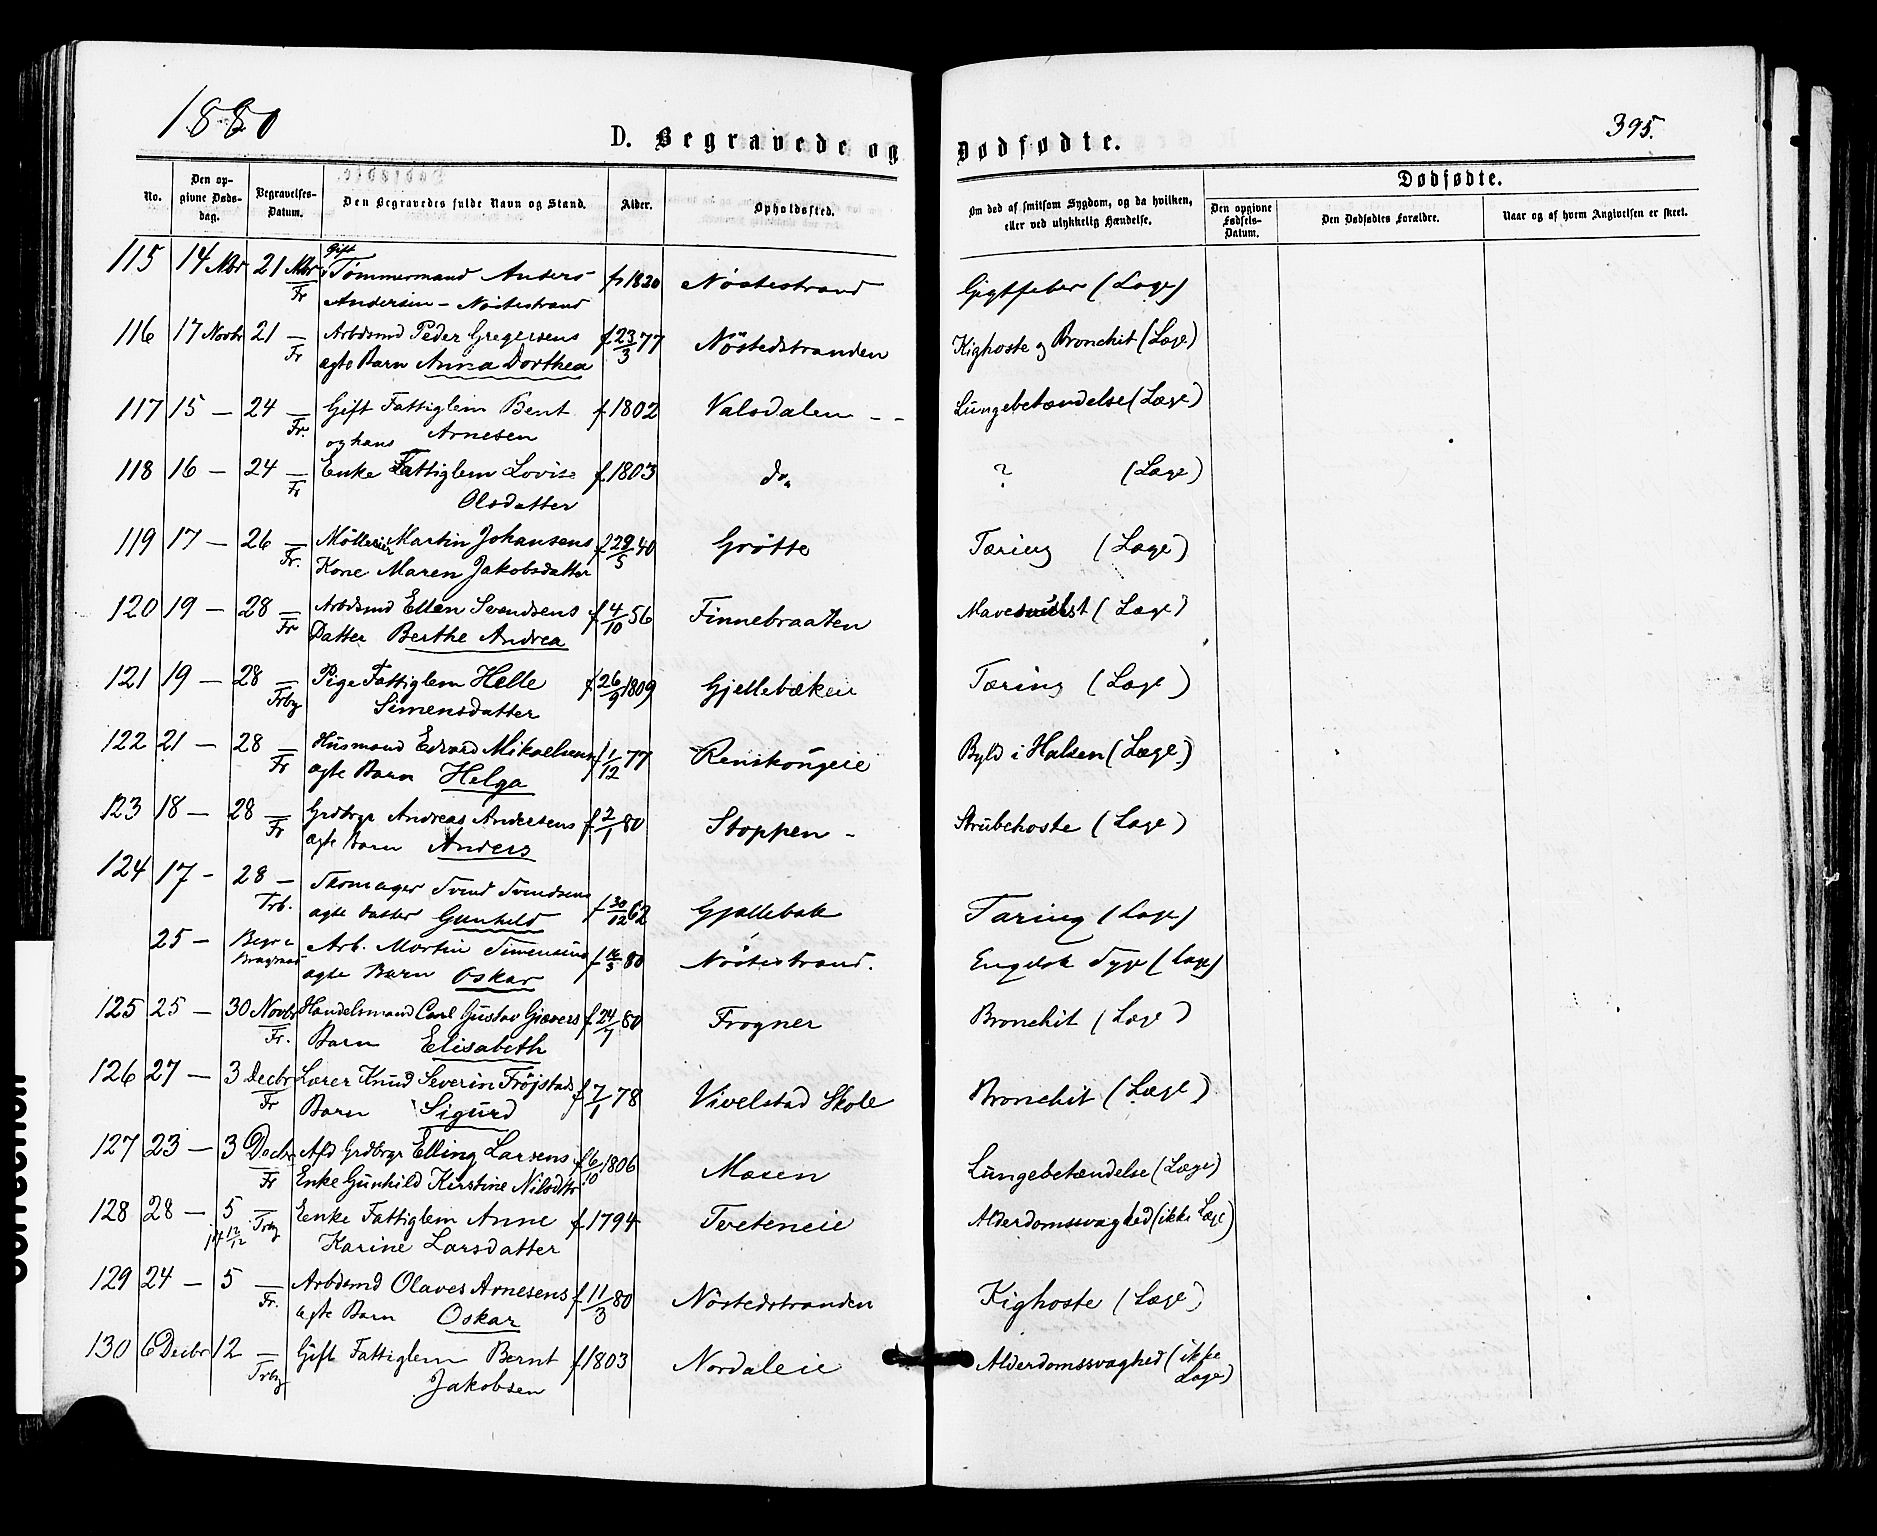 1880
D. Begravede og Dødfødte.
395.
No.
Den opgivne Døds-dag.
Begravelses-Datum.
Den Begravedes fulde Navn og Stand.
Alder.
Opholdssted.
Om død af smitsom Sygdom, og da hvilken, eller ved ulykkelig Hændelse.
Dødfødte.
Den opgivne Fødsels-Datum.
Den Dødfødtes Forældre.
Naar og af hvem Angivelsen er skeet.
115 14 Nbr 21 Nbr Gift Tømmermand Anders f 1820 Nøstestrand Gigtfeber (Læge)
Fr Andersen - Nøstestrand
116 17 Novbr 21 — Arbdsmd Peder Gregersens f 23/3 77 Nöstedstranden Kighoste og Bronchit (Læge)
Fr ægte Barn Anna Dorthea
117 15 — 24 — Gift Fattiglem Bent f 1802 Valsdalen - - Lungebetændelse (Læge)
Fr. og hans Arnesen
118 16 — 24 — Enke Fattiglem Lovise f. 1803 do. ? (Læge)
Fr Olsdatter
119 17 — 26 — Martin Johansens f 29/5 40 Grøtte Tæring (Læge)
Fr. Kone Maren Jakobsdatter
120 19 — 28 — Arbdsmd Ellen Svendsens f 4/10 56 Finnebraaten Mavesvulst (Læge)
Fr Datter Berthe Andrea
121 19 — 28 — Pige Fattiglem Helle f. 26/9 1809 Gjellebæken Tæring (Læge)
Frby Simensdatter
122 21 — 28 — Husmand Edvard Mikaelsens f 1/12 77 Renskougeie Byld i Halsen (Læge)
Fr ægte Barn Helga
123 18 — 28 — Grdbrgr Andreas Andersens f. 2/1 80 Stoppen - Strubehoste (Læge)
Fr ægte Barn Anders
124 17 - 28 — Skomager Svend Svendsens f 30/12 62 Gjællebæk Tæring (Læge)
Trb. ægte datter Gunhild
25 - Begr i Arb. Martin Simensens f 80 Nøstestrand. Engelsk Syge (Læge)
Bragenæs ægte Barn Oskar
125 25 — 30 Novbr Handelsmand Carl Gustav Giævers f 24/7 80 Frogner Bronchit (Læge)
Fr. Barn Elisabeth
126 27 — 3 Decbr Lærer Knud Severin Trøjstads f 7/1 78 Vivelstad Skole Bronchit (Læge)
Fr Barn Sigurd
127 23 — 3 Decbr Afd Grdbrgr Elling Larsens f 6/10 1806 Mosen Lungebetændelse (Læge)
Fr Enke Gunhild Kirstine Nilsdtr
128 28 — 5 — Enke Fattiglem Anne f. 1794 Tveteneie Alderdomssvaghed (ikke Læge)
12/12 Trby Karine Larsdatter
129 24 — 5 — Arbdsmd Olaves Arnesens f. 11/3 80 Nöstedstranden Kighoste (Læge)
Fr. ægte Barn Oskar
130 6 Decbr 12 — Gift Fattiglem Bernt f 1803 Nordaleie Alderdomssvaghed (ikke
Trby Jakobsen Læge)